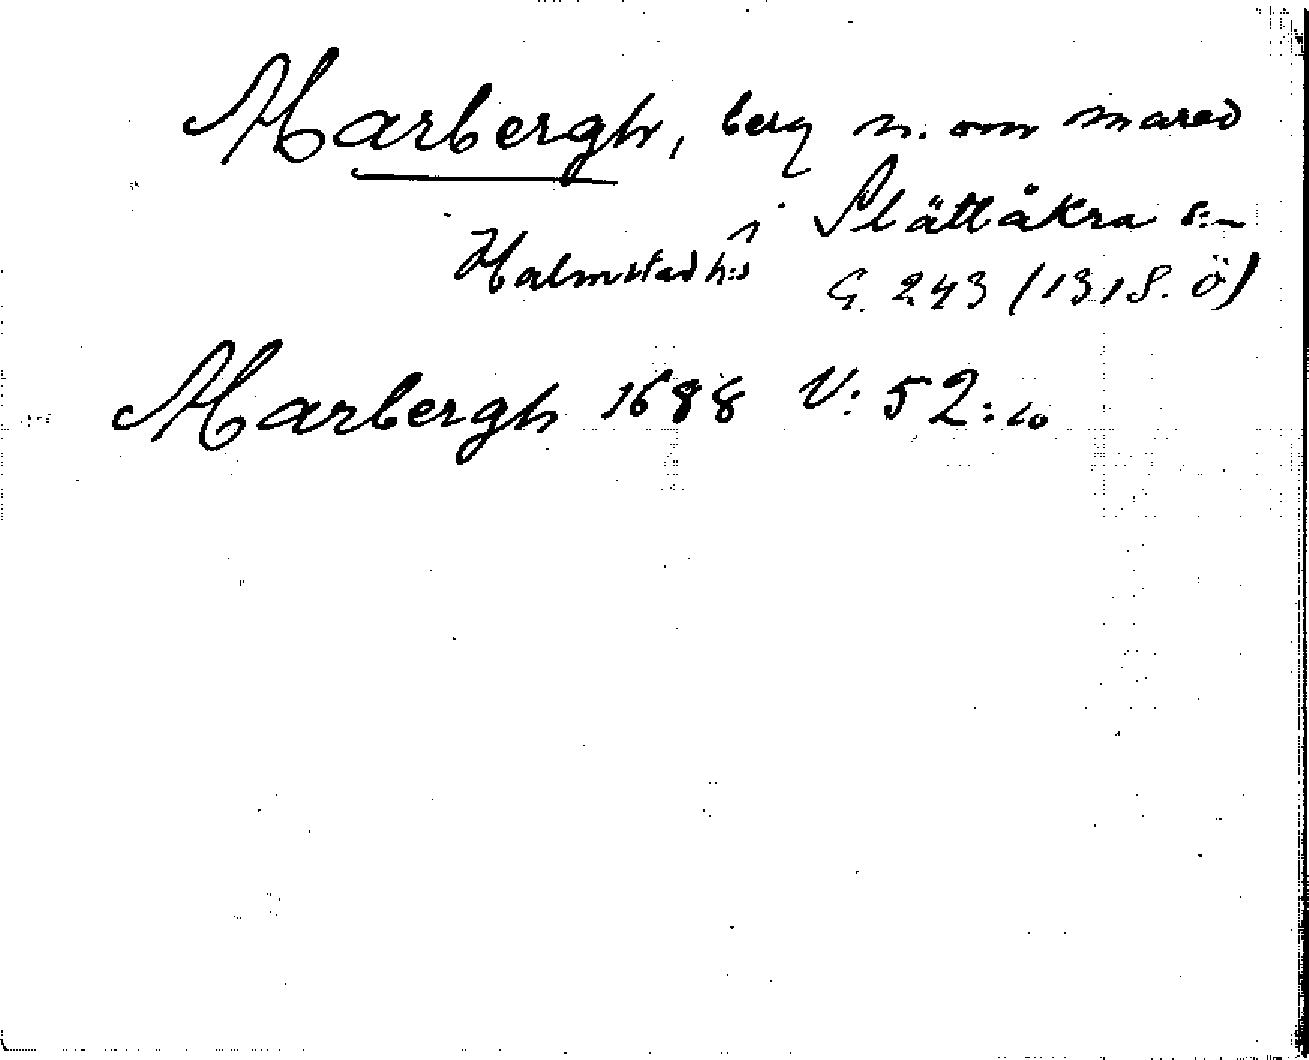 Marbergh, berg n. om Mared
i Slättåkra s:n
Halmstad h:s
G. 243 (1318. Ö)
Marbergh 1688 V: 52:10